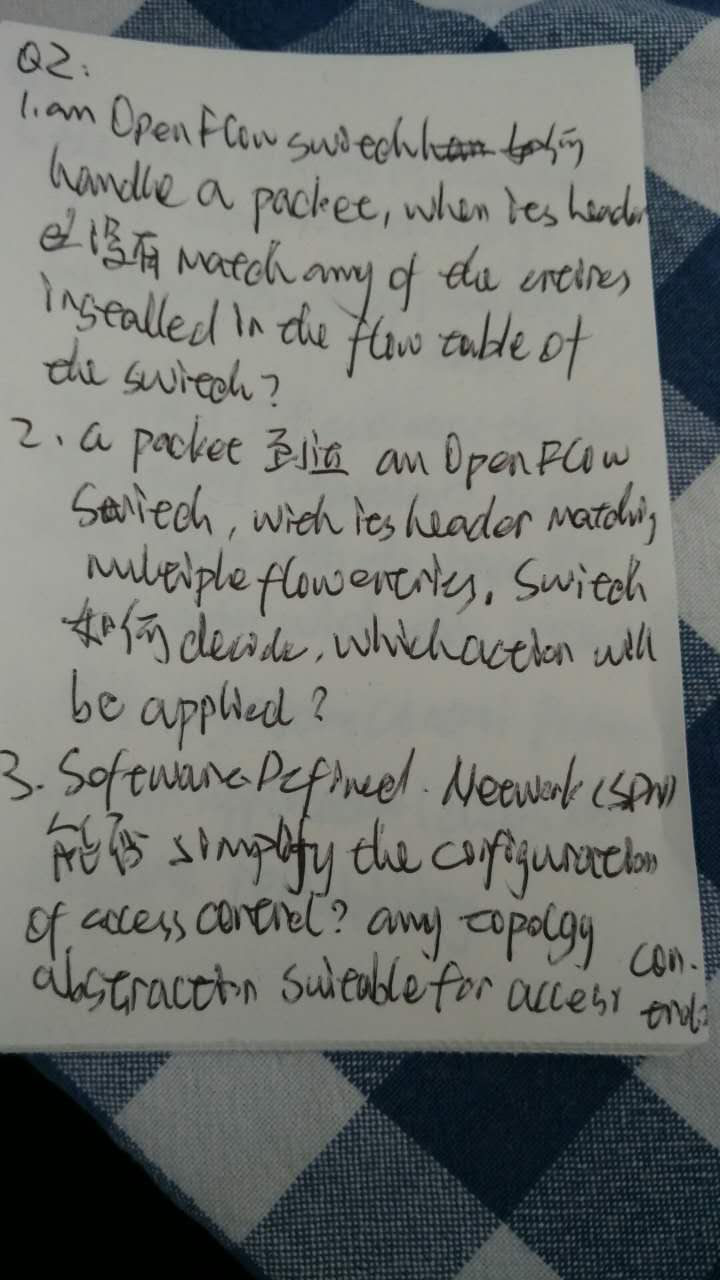 Q2:
1. an OpenFlow switch 如何
handle a packet, when its header
也没有 match any of the entires
installed in the flow table of
the switch?
2. a packet 到达 an OpenFlow
Switch, with its header matching
multiple flow entries, Switch
如何 decide, which action will
be applied?
3. Software-Defined. Network (SDN)
能否 simplify the configuration
of access control? any topolgy
abstraction suitable for access con-
trol?